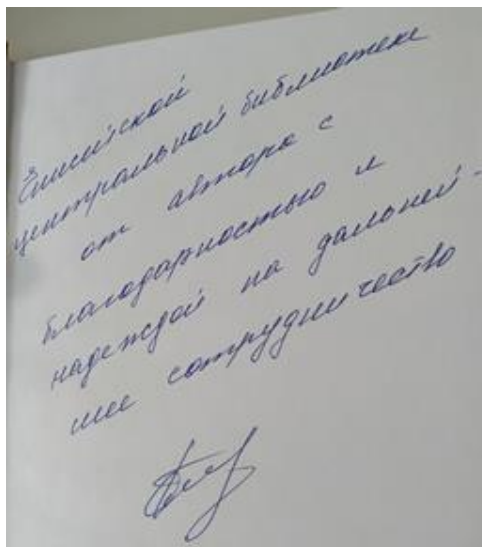 центральной библиотеке
от автора с
благодарностью и
надеждой на дальней-
шее сотрудничество